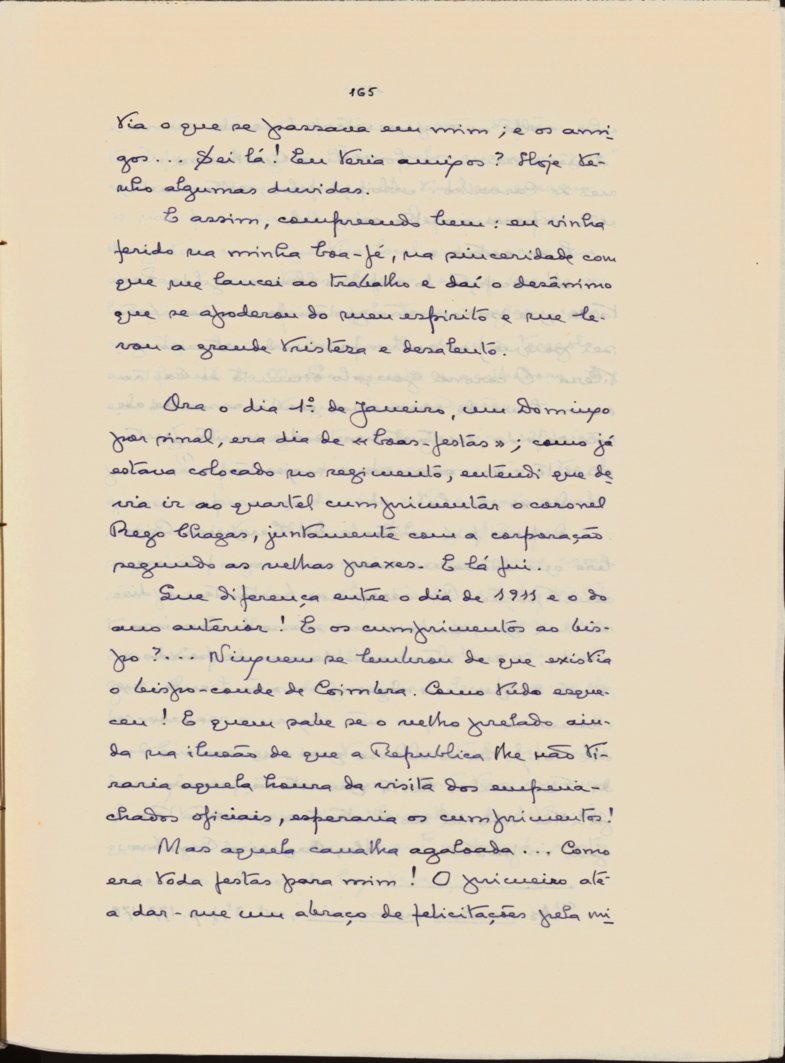 165
tia o que se passava em mim; e os ami-
gos... Sei lá! Eu teria amigos? Hoje te-
nho algumas duvidas.
E assim, compreendo bem: eu vinha
ferido na minha boa-fé, na sinceridade com
que me lancei ao trabalho e daí o desânimo
que se apoderou do meu espirito e me le-
vou a grande tristeza e desalento.
Ora o dia 1º de Janeiro, um Domingo
por sinal, era dia de «boas-festas»; como já
estava colocado no regimento, entendi que de-
via ir ao quartel cumprimentar o coronel
Rego Chagas, juntamente com a corporação
segundo as velhas praxes. E lá fui.
Que diferença entre o dia de 1911 e o do
ano anterior! E os cumprimentos ao bis-
po?... Ninguem se lembrou de que existia
o bispo-conde de Coimbra. Como tudo esque-
ceu! E quem sabe se o velho prelado ain-
da na ilusão de que a Republica lhe não ti-
raria aquela honra da visita dos empena-
chados oficiais, esperaria os cumprimentos!
Mas aquela canalha agaloada... Como
era toda festas para mim! O primeiro até
a dar-me um abraço de felicitações pela mi-